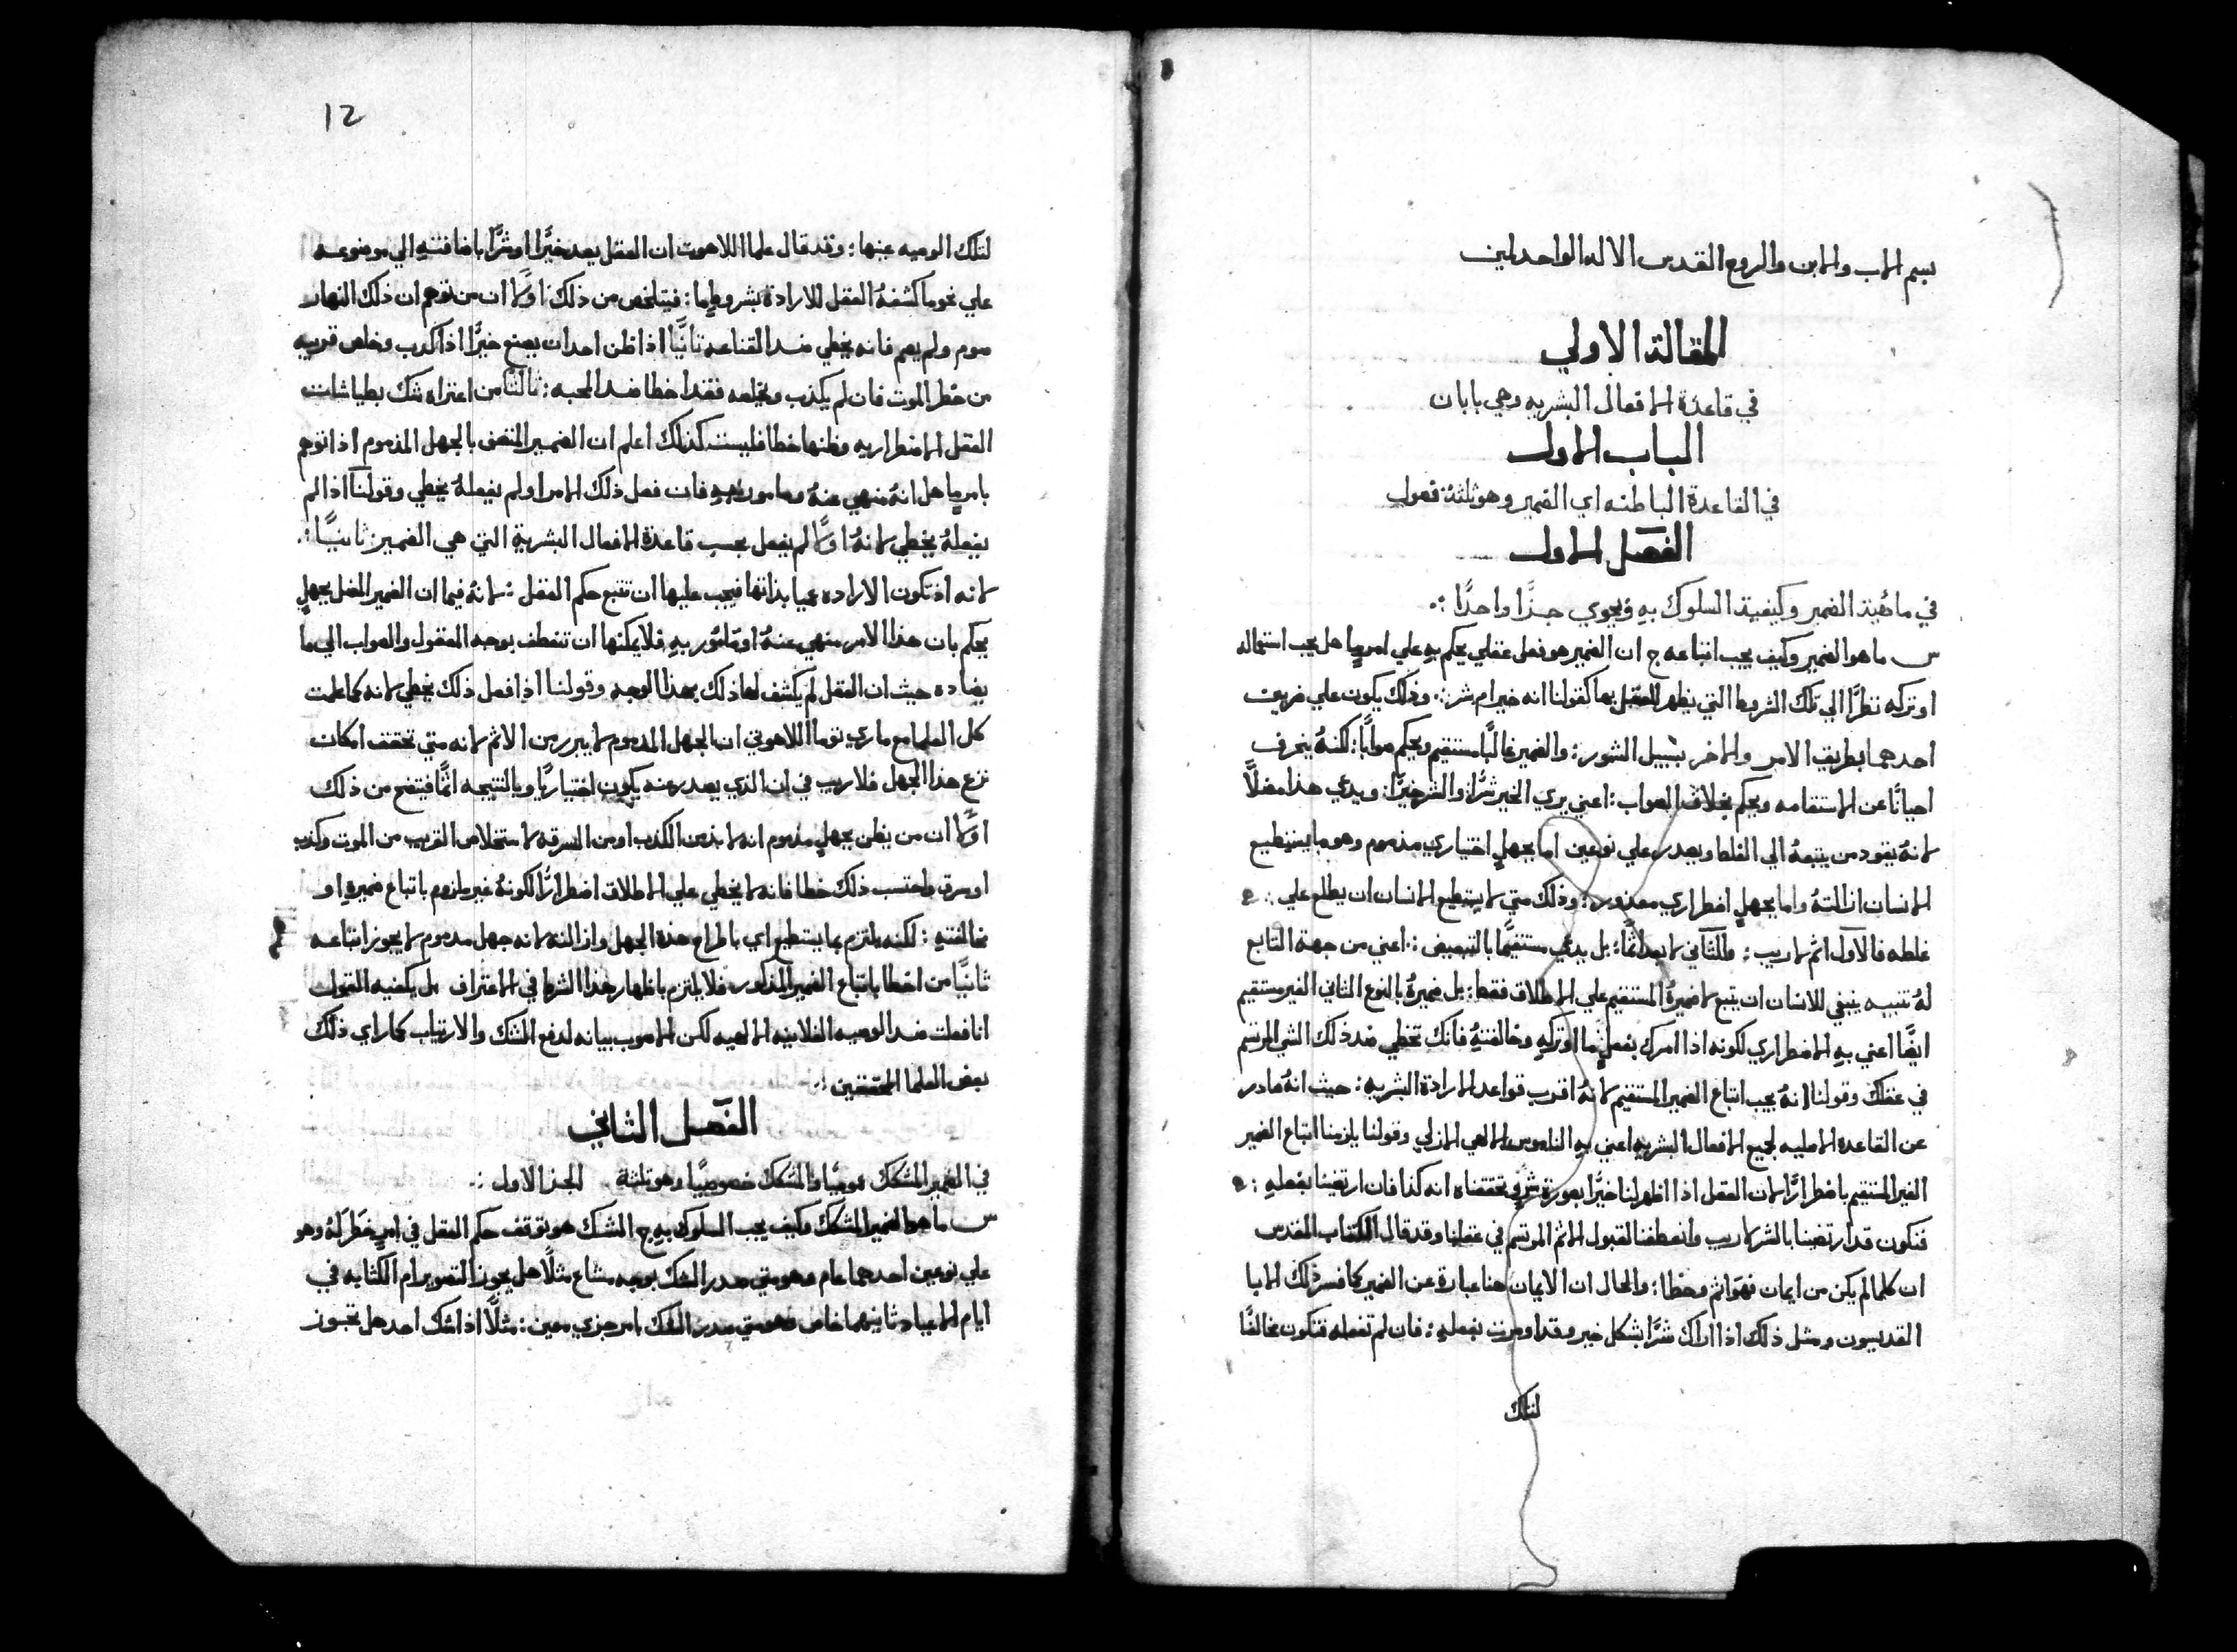 بسم الاب والابن والروح القدس الاله الواحد امين
المقالة الاولي
في قاعدة الافعال البشريه وهي بابان
الباب الاول
في القاعدة الباطنه اي الضمير وهو ثلثة فصول
الفصل الاول
في مائية الضمير وكيفية السلوك بهِ ويحوي جزًا واحدًا
س ما هو الضمير وكيف يجب اتباعه ج ان الضمير هو فعل عقلي يحكم بهِ علي امرٍ ما هل يجب استعماله
او تركه نظرًا الي تلك الشروط التي يظهر للعقل بها كقولنا انه خير ام شر : وذلك يكون علي ضربين
احدهما بطريق الامر والاخر بسبيل الشور : والضمير غالبًا مستقيم ويحكم صوابًا : لكنهُ ينحرف
احيانًا عن الاستقامه ويحكم بخلاف الصواب : اعني يري الخير شرًا والشر خيرًا : ويدعي هذا مضلًا
لانهُ يقود من يتبعهُ الي الغلط ويصدر علي نوعين اما بجهلٍ اختياري مذموم وهو ما يستطيع
الانسان ازالتهُ واما بجهلٍ اضطراري معذور : وذلك متي لا يستطيع الانسان ان يطلع علي
غلطه فالاول اثم لا ريب : والثاني لا يعد اثمًا : بل يدعي مستقيمًا بالتبعيض : اعني من جهة التابع
لهُ تنبيه ينبغي للانسان ان يتبع لا ضميرهُ المستقيم علي الاطلاق فقط : بل ضميرهُ بالنوع الثاني الغير مستقيم
ايضًا اعني بهِ الاضطراري لكونه اذا امرك بفعلٍ ما او تركهِ وخالفتهُ فانك تخطي ضد ذلك الشي المرتسم
في عقلك وقولنا انهُ يجب اتباع الضمير المستقيم لانهُ اقرب قواعد الارادة البشريه : حيث انهُ صادر
عن القاعدة الاصليه لجميع الافعال البشريه اعني بهِ الناموس الالهي الازلي وقولنا يلزمنا اتباع الضمير
الغير المستقيم باضطرارًا لان العقل اذا اظهر لنا خيرًا بصورة شرٍ وتحققناه انه كذا فان ارتضينا بفعلهِ :
فنكون قد ارتضينا بالشر لا ريب وانعطفنا لقبول الاثم المرتسم في عقلنا وقد قال الكتاب المقدس
ان كلما لم يكن من ايمان فهو اثم وخطا : والحال ان الايمان هنا عبارة عن الضمير كما فسر ذلك الابا
القديسون ومثل ذلك اذا اراك شرًا بشكل خير وقد اومرت بفعلهِ : فان لم تفعله فتكون مخالفًا
لتلك
12
لتلك الوصيه عينها : وقد قال علما اللاهوت ان الفعل يعد خيرًا او شرًا باضافتهِ الي موضوعه
علي نحو ما كشفهُ العقل للارادة بشروطٍ ما : فيتلخص من ذلك اولًا ان من توهم ان ذلك النهار
صوم ولم يصم فانه يخطي ضد القناعه ثانيًا اذا ظن احد ان يصنع خيرًا اذا كدب وخلص قريبه
من خطر الموت فان لم يكذب ويخلصه فقد اخطا ضد المحبه : ثالثًا من اعتراه شك بطياشات
العقل الاضطراريه وظنها خطا فليست كذلك اعلم ان الضمير المتصف بالجهل المذموم اذا توهم
بامرٍ ما هل انهُ منهي عنهُ وما مورٌ بهِ فان فعل ذلك الامر او لم يفعلهُ يخطي وقولنا اذا لم
يفعلهُ يخطي لانهُ اولًا لم يفعل بحسب قاعدة الافعال البشرية التي هي الضمير ثانيًا :
لانه اذ تكون الارادة عميا بذاتها فيجب عليها ان تتبع حكم العقل : لانهُ فيما ان الضمير المضل بجهلٍ
يحكم بان هذا الامر منهي عنهُ او مامور بهِ فلا يمكنها ان تنعطف بوجه المعقول والصواب الي ما
يضاده حيث ان العقل لم يكشف لها ذلك بهذا الوجه وقولنا اذا فعل ذلك يخطي لانه كما علمت
كل العلما مع ماري توما اللاهوتي ان الجهل المدموم لا يبرر من الاثم لانه متي تحقق امكان
نزع هذا الجهل فلا ريب في ان الذي يصدر عنه يكون اختياريًا وبالنتيجه اثمًا فيتضح من ذلك
اولًا ان من يظن بجهلٍ مدموم انه لا بد من الكذب او من السرقه لاستخلاص القريب من الموت وكدب
او سرق واحتسب ذلك خطا فانه لا يخطي علي الاطلاق اضطرارًا لكونهُ غير ملزوم باتباع ضميرهِ او
مخالفتهِ : لكنه يلتزم بما يستطيع اي باطراح هذه الجهل وازالته لانه جهل مدموم لا يجوز اتباعه
ثانيًا من اخطا باتباع الضمير المذكور فلا يلتزم باظهار هذا الشرط في الاعتراف بل يكفيه القول
انا فعلت ضد الوصيه الفلانيه الالهيه لكن الاصوب بيانه لدفع الشك والارتياب كما راي ذلك
بعض العلما المحققين :
الفصل الثاني
في الضمير المشكك عموميًا والمشكك خصوصيًا وهو ثلثة الجز الاول :
س ما هو الضمير المشكك وكيف يجب السلوك بهِ ج المشك هو توقف حكم العقل في امرٍ خَطَرَ لهُ وهو
علي نوعين احدهما عام وهو متي صدر الشك بوجه مشاع مثلًا هل يجوز التصوير ام الكتابه في
ايام الاعياد ثانيهما خاص وهو متي صدر الشك بامر جزي معين : مثلًا اذا شك احد هل تجوز